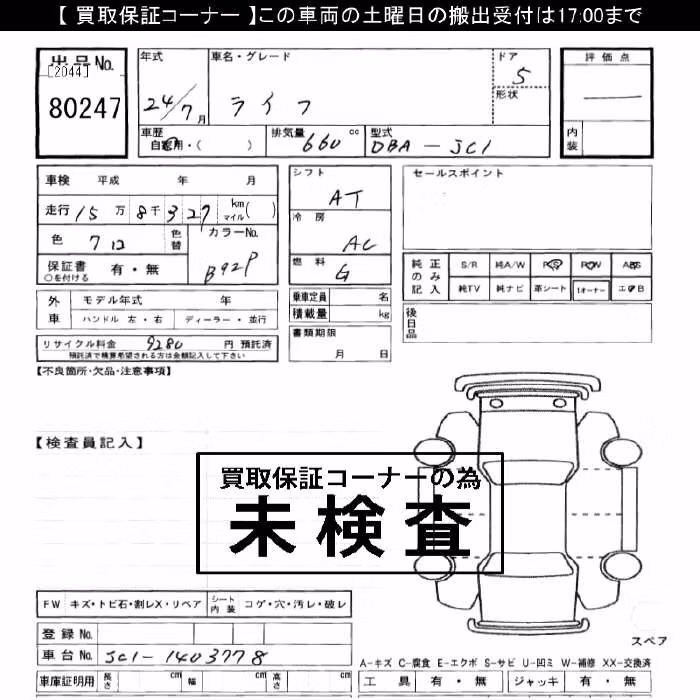 【 買取保証コーナー 】この車両の土曜日の搬出受付は17:00まで
出品No.
[2044]
80247
年式
24/7月
車名・グレード
ライフ
ドア
5
形状
評価点
内装
車歴
自家用・( )
排気量 660 cc
型式
DBA-JC1
車検 平成 年 月
走行 15万 8千327 km マイル( )
色 クロ 色替
カラーNo.
B92P
保証書 ○を付ける 有・無
外車
モデル年式 年
ハンドル 左・右 ディーラー・並行
リサイクル料金 9280 円 預託済
預託済で精算希望される方は金額記入して下さい
シフト
AT
冷房
AC
燃料
G
乗車定員 名
積載量 kg
書類期限
月 日
セールスポイント
純正のみ記入
S/R 純A/W P/S P/W ABS
純TV 純ナビ 革シート 1オーナー エアB
後日品
【不良箇所・欠品・注意事項】
【検査員記入】
買取保証コーナーの為
未検査
FW キズ・トビ石・割レX・リペア シート内装 コゲ・穴・汚レ・破レ
登録No.
車台No. JC1-1403778
車庫証明用 長さ cm 幅 cm 高さ cm
スペア
A-キズ C-腐食 E-エクボ S-サビ U-凹ミ W-補修 XX-交換済
工具 有・無 ジャッキ 有・無